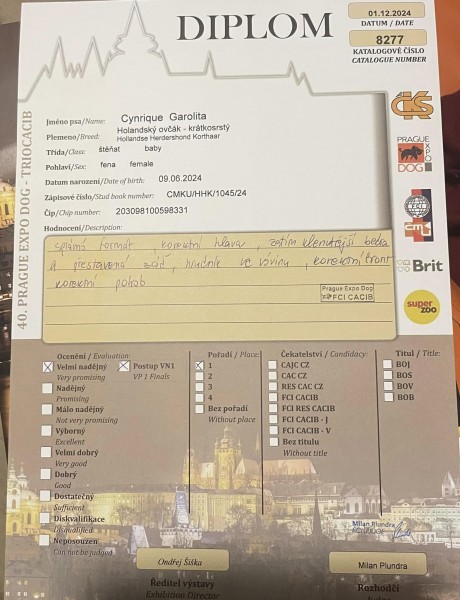 DIPLOM
01.12.2024
DATUM / DATE
8277
KATALOGOVÉ ČÍSLO
CATALOGUE NUMBER
40. PRAGUE EXPO DOG - TRIOCACIB
Jméno psa/Name: Cynrique Garolita
Plemeno/Breed: Holandský ovčák - krátkosrstý
Hollandse Herdershond Korthaar
Třída/Class: štěňat baby
Pohlaví/Sex: fena female
Datum narození/Date of birth: 09.06.2024
Zápisové číslo/Stud book number: CMKU/HHK/1045/24
Čip/Chip number: 203098100598331
Hodnocení/Description:
formát, korektní hlava, zatím klenutější bedra
a přestavěná záď, hrudník ve vývinu, korektní front
korektní pohyb
Prague Expo Dog
FCI CACIB
ČKS
PRAGUE
EXPO
DOG
FCI
Brit
super
zoo
Ocenění / Evaluation:
Velmi nadějný
Very promising
Postup VN1
VP 1 Finals
Nadějný
Promising
Málo nadějný
Not very promising
Výborný
Excellent
Velmi dobrý
Very good
Dobrý
Good
Dostatečný
Sufficient
Diskvalifikace
Disqualified
Neposouzen
Can not be judged
Pořadí / Place:
1
2
3
4
Bez pořadí
Without place
Čekatelství / Candidacy:
CAJC CZ
CAC CZ
RES CAC CZ
FCI CACIB
FCI RES CACIB
FCI CACIB - J
FCI CACIB - V
Bez titulu
Without title
Titul / Title:
BOJ
BOS
BOV
BOB
Milan Plundra
Ondřej Šiška
Ředitel výstavy
Exhibition Director
Milan Plundra
Rozhodčí